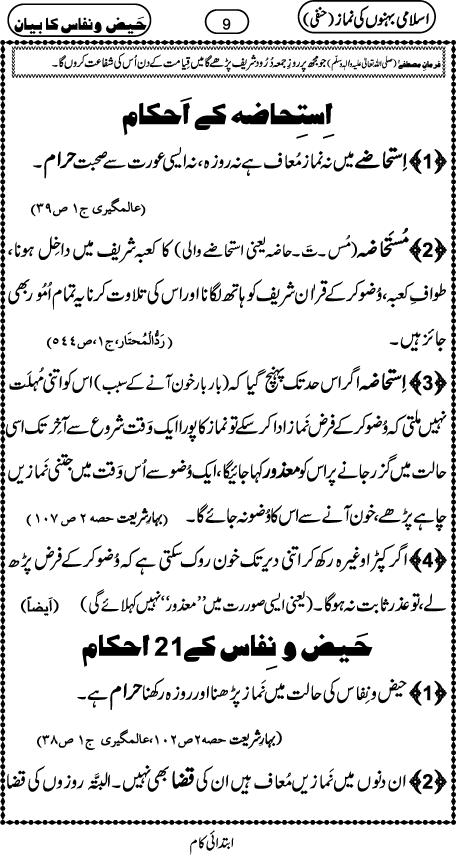 اسلامی بہنوں کی نماز (حنفی)
9
حَیض و نفاس کا بیان
فرمانِ مصطفٰے (صلی اللہ تعالیٰ علیہ والہ وسلم) جو مجھ پر روزِ جمعہ دُرُود شریف پڑھے گا میں قیامت کے دن اُس کی شفاعت کروں گا۔
اِستِحاضہ کے اَحکام
﴿1﴾ اِستحاضے میں نہ نماز مُعاف ہے نہ روزہ، نہ ایسی عورت سے صحبت حرام۔
(عالمگیری ج۱ ص۳۹)
﴿2﴾ مُستَحاضہ (مُس۔تَ۔حاضہ یعنی استحاضے والی) کا کعبہ شریف میں داخِل ہونا،
طوافِ کعبہ، وُضو کر کے قراٰن شریف کو ہاتھ لگانا اور اس کی تلاوت کرنا یہ تمام اُمُور بھی
جائز ہیں۔ (رَدُّالْمُحتَار،ج۱،ص۵۴۴)
﴿3﴾ اِستحاضہ اگر اس حد تک پہنچ گیا کہ (بار بار خون آنے کے سبب) اس کو اتنی مُہلَت
نہیں ملتی کہ وُضو کر کے فرض نَماز ادا کر سکے تو نَماز کا پورا ایک وَقت شروع سے آخِر تک اسی
حالت میں گزر جانے پر اس کو معذور کہا جائیگا، ایک وُضو سے اُس وَقت میں جتنی نَمازیں
چاہے پڑھے، خون آنے سے اس کا وُضو نہ جائے گا۔ (بہارِ شریعت حصہ ۲ ص ۱۰۷)
﴿4﴾ اگر کپڑا وغیرہ رکھ کر اتنی دیر تک خون روک سکتی ہے کہ وُضو کر کے فرض پڑھ
لے، تو عذر ثابت نہ ہوگا۔ (یعنی ایسی صورت میں ’’معذور‘‘ نہیں کہلائے گی) (اَیضاً)
حَیض و نِفاس کے 21 احکام
﴿1﴾ حیض و نِفاس کی حالت میں نَماز پڑھنا اور روزہ رکھنا حرام ہے۔
(بہارِ شریعت حصہ۲ ص۱۰۲، عالمگیری ج۱ ص۳۸)
﴿2﴾ ان دنوں میں نَمازیں مُعاف ہیں ان کی قضا بھی نہیں۔ البتَّہ روزوں کی قضا
ابتدائی کام